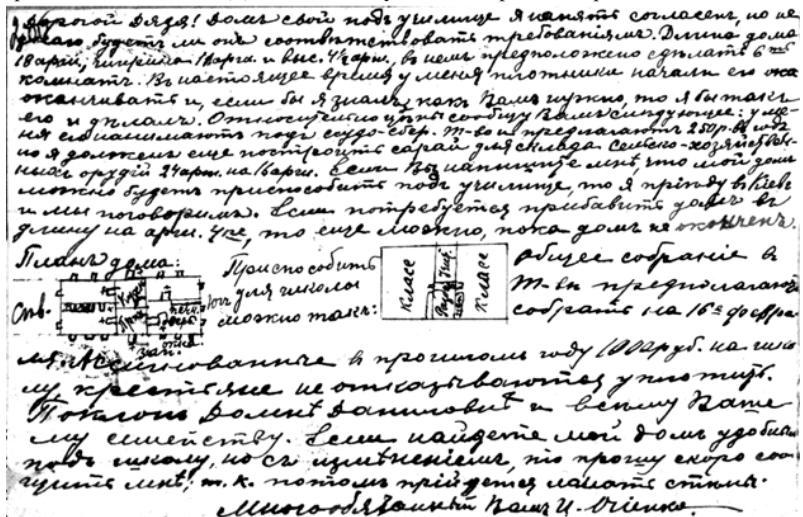 Дорогой Дядя! Домъ свой подъ училище я нанять согласенъ, но не
знаю будетъ ли онъ соотвѣтствовать требованіямъ. Длина дома
18 арш., ширина 12 арш. и выс. 4½ арш., въ немъ предположено сдѣлать 6ть
комнатъ. Въ настоящее время у меня плотники начали его ока
оканчивать и, если бы я зналъ, какъ Вамъ нужно, то я бы такъ
его и дѣлалъ. Относительно цѣны сообщу Вамъ слѣдующее: у ме-
ня его нанимаютъ подъ ссудо-сбер. т-во и предлагаютъ 250 р. въ годъ
но я долженъ еще построить сарай для склада сельско-хозяйствен-
ныхъ орудій 24 арш. на 12 арш. Если Вы напишите мнѣ, что мой домъ
можно будетъ приспособить подъ училище, то я пріѣду въ Кіевъ
и мы поговоримъ. Если потребуется прибавить домъ въ
длину на арш., то еще можно, пока домъ не оконченъ.
Планъ дома:
Ств.
Югъ
зап.
Приспособить
для школы
можно такъ:
Классъ
Классъ
Общее собраніе въ
Т-вѣ предполагаютъ
собрать на 16е февра-
ля. Ассигнованные въ прошломъ году руб. на шко
лу крестьяне не отказываются уплотить.
Поклонъ Домнѣ Даниловнѣ и всему Ваше
му семейству. Если найдете мой домъ удобнымъ
подъ школу, но съ измѣненіемъ, то прошу скоро соо
бщить мнѣ, т. к. потомъ прійдется ломать стѣны.
Многообязанный Вамъ И. Огіенко.